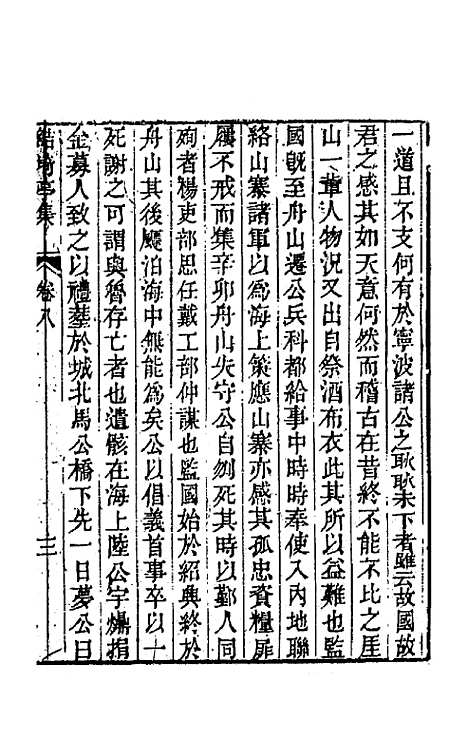 一道且不支何有於寧波諸公之耿耿未下者雖云故國故
君之感其如天意何然而稽古在昔終不能不比之厓
山一輩人物况又出自祭酒布衣此其所以益難也監
國旣至舟山遷公兵科都給事中時時奉使入内地聯
絡山寨諸軍以爲海上策應山寨亦感其孤忠資糧屝
屨不戒而集辛卯舟山失守公自刎死其時以鄞人同
殉者楊吏部思任戴工部仲謀也監國始於紹興終於
舟山其後飄泊海中無能爲矣公以倡義首事卒以一
死謝之可謂與魯存亡者也遺骸在海上陸公宇㷆捐
金募人致之以禮葬於城北馬公橋下先一日夢公曰
鮚埼亭集 卷八 三